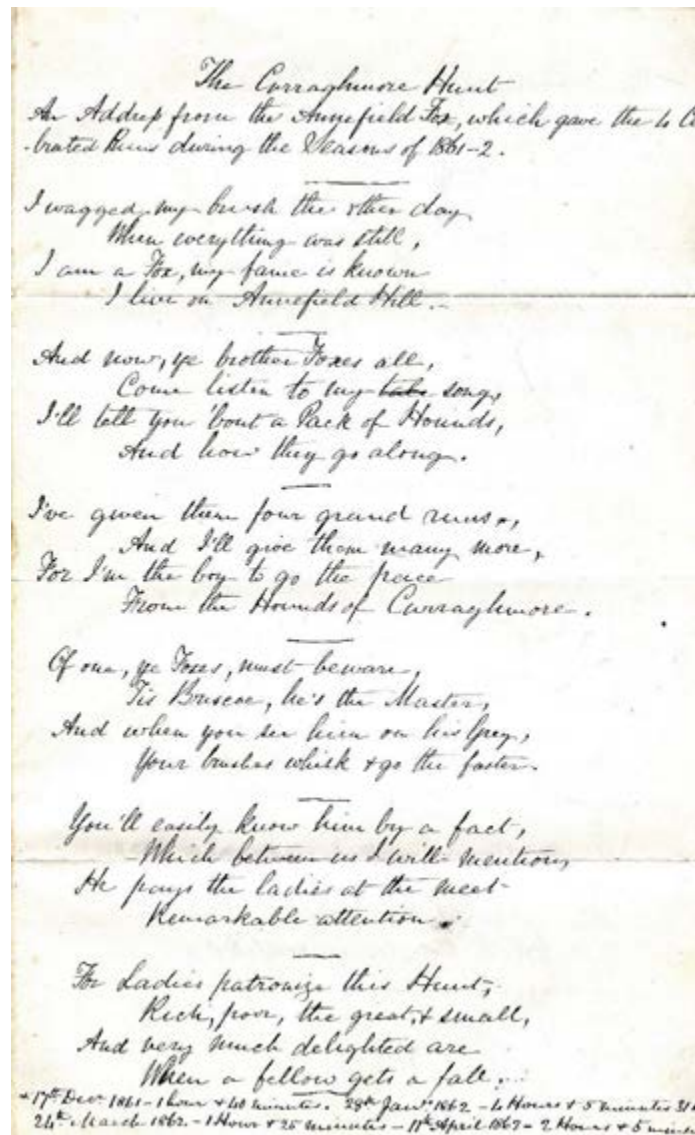 The Curraghmore Hunt
An Address from the Annefield Fox, which gave the 4 Ce
-brated Runs during the Seasons of 1861-2.
I wagged my brush the other day
When everything was still,
I am a Fox, my fame is known
I live on Annefield Hill.
And now, ye brother Foxes all,
Come listen to my tale song,
I'll tell you 'bout a Pack of Hounds,
And how they go along.
I've given them four grand runs,
And I'll give them many more,
For I'm the boy to go the pace
From the Hounds of Curraghmore.
Of one, ye Foxes, must beware,
Tis Briscoe, he's the Master,
And when you see him on his Grey,
Your brushes whisk & go the faster.
You'll easily know him by a fact,
Which between us I will mention,
He pays the ladies at the meet
Remarkable attention.
For Ladies patronize this Hunt,
Rich, poor, the great, & small,
And very much delighted are
When a fellow gets a fall.
* 17th Decr 1861 - 1 hour & 40 minutes. 28th Jany 1862 - 4 Hours & 5 minutes
24th March 1862 - 1 Hour & 25 minutes - 11th April 1862 - 2 Hours & 5 minutes